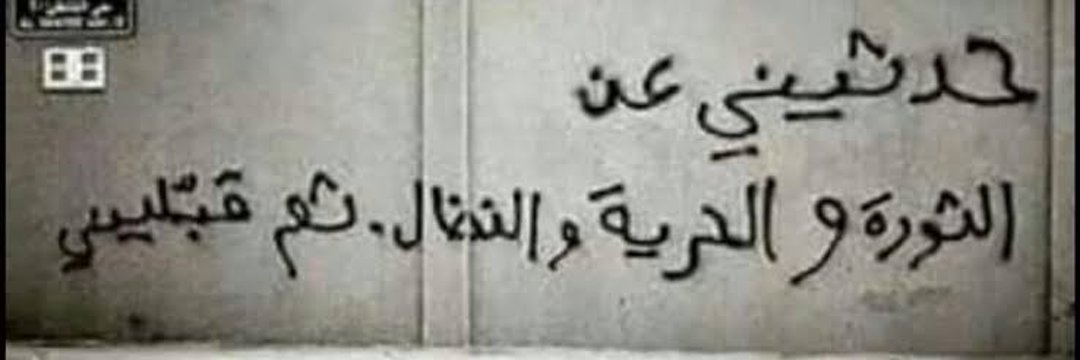 حدثيني عن
الثورة و الحرية والنضال. ثم قبّليني